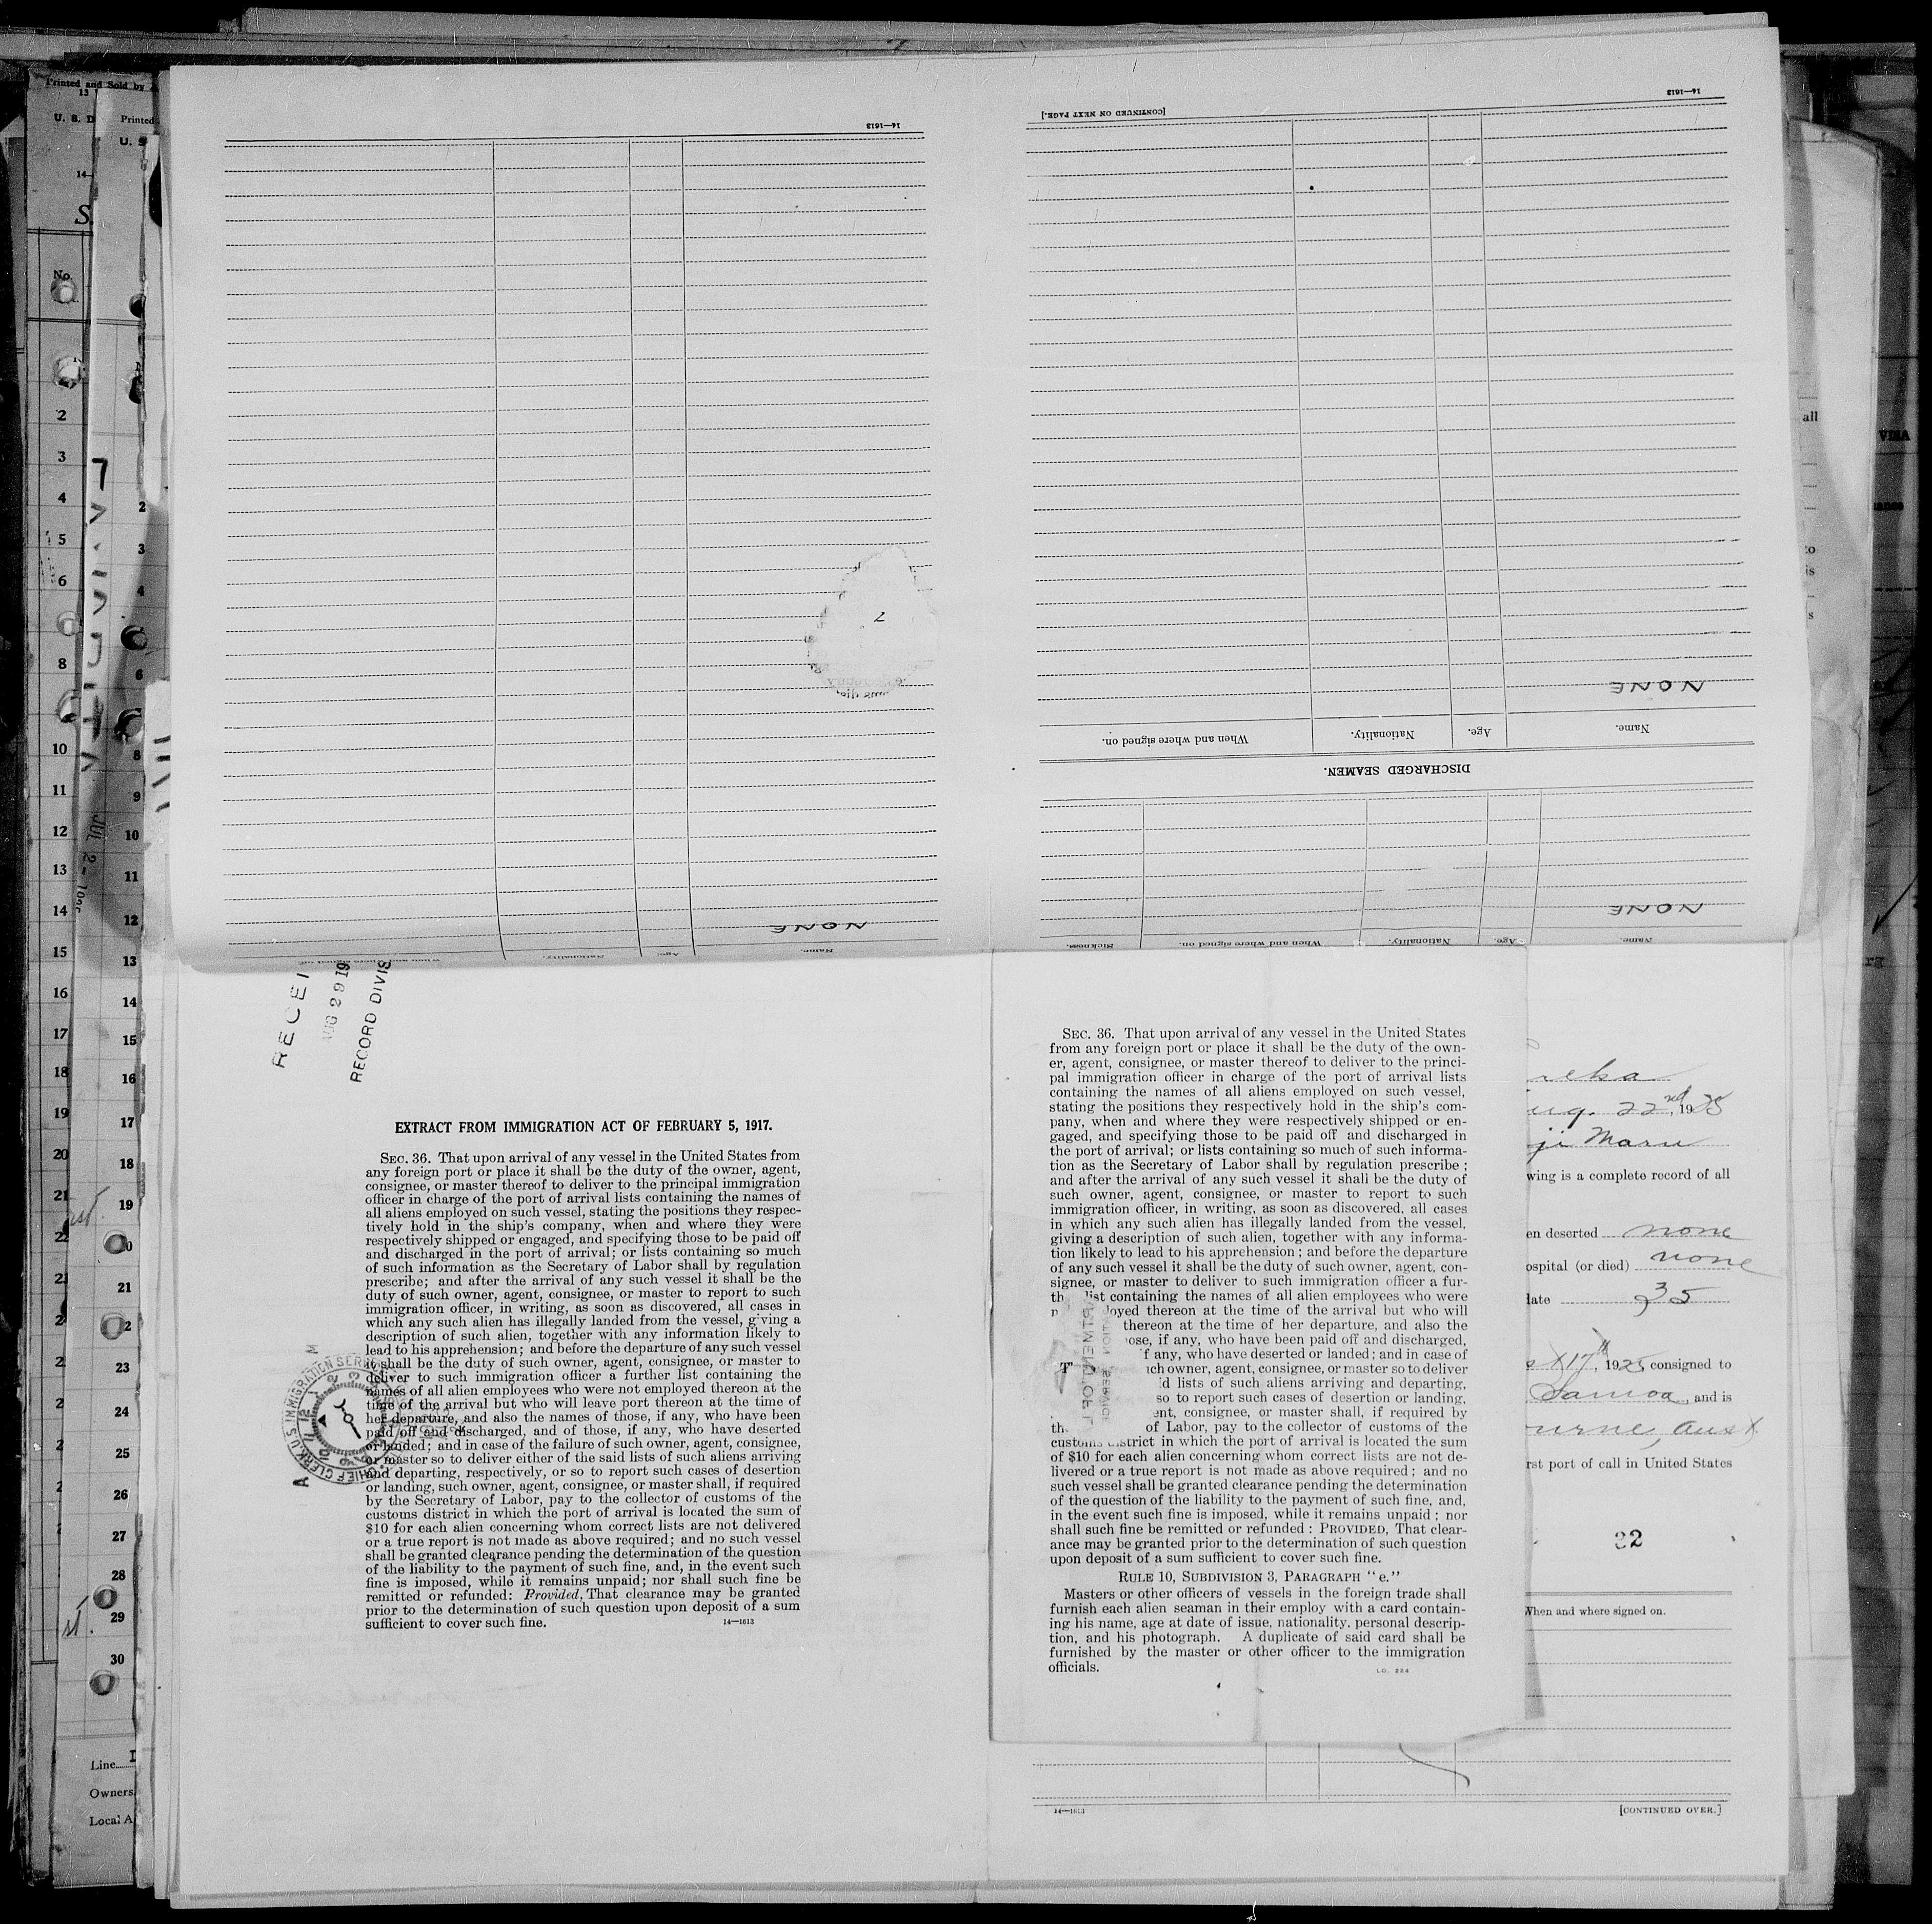 Printed and Sold by
13
U. S. D
Printed
U. S
14—
S.
No.
2
3
4
5
6
8
10
11
12
13
14
15
16
17
18
19
20
21
2
3
4
6
8
9
10
11
12
13
14
15
16
17
18
19
21
23
24
25
26
27
28
29
30
JUL 2-
Line
Owners
Local A
14—1613
14—1613
[CONTINUED ON NEXT PAGE.]
NONE
Name.
Age.
Nationality.
When and where signed on.
DISCHARGED SEAMEN.
NONE
Name.
Age.
Nationality.
When and where signed on.
Sickness.
NONE
Name.
Age.
Nationality.
When and where signed on.
all
VISA
to
is
s
RECEI
AUG 29 19
RECORD DIVIS
EXTRACT FROM IMMIGRATION ACT OF FEBRUARY 5, 1917.
SEC. 36. That upon arrival of any vessel in the United States from
any foreign port or place it shall be the duty of the owner, agent,
consignee, or master thereof to deliver to the principal immigration
officer in charge of the port of arrival lists containing the names of
all aliens employed on such vessel, stating the positions they respec-
tively hold in the ship's company, when and where they were
respectively shipped or engaged, and specifying those to be paid off
and discharged in the port of arrival; or lists containing so much
of such information as the Secretary of Labor shall by regulation
prescribe; and after the arrival of any such vessel it shall be the
duty of such owner, agent, consignee, or master to report to such
immigration officer, in writing, as soon as discovered, all cases in
which any such alien has illegally landed from the vessel, giving a
description of such alien, together with any information likely to
lead to his apprehension; and before the departure of any such vessel
it shall be the duty of such owner, agent, consignee, or master to
deliver to such immigration officer a further list containing the
names of all alien employees who were not employed thereon at the
time of the arrival but who will leave port thereon at the time of
her departure, and also the names of those, if any, who have been
paid off and discharged, and of those, if any, who have deserted
or landed; and in case of the failure of such owner, agent, consignee,
or master so to deliver either of the said lists of such aliens arriving
and departing, respectively, or so to report such cases of desertion
or landing, such owner, agent, consignee, or master shall, if required
by the Secretary of Labor, pay to the collector of customs of the
customs district in which the port of arrival is located the sum of
$10 for each alien concerning whom correct lists are not delivered
or a true report is not made as above required; and no such vessel
shall be granted clearance pending the determination of the question
of the liability to the payment of such fine, and, in the event such
fine is imposed, while it remains unpaid; nor shall such fine be
remitted or refunded: Provided, That clearance may be granted
prior to the determination of such question upon deposit of a sum
sufficient to cover such fine.
14—1613
CHIEF CLERK U.S. IMMIGRATION SERVICE
A M
SEC. 36. That upon arrival of any vessel in the United States
from any foreign port or place it shall be the duty of the own-
er, agent, consignee, or master thereof to deliver to the princi-
pal immigration officer in charge of the port of arrival lists
containing the names of all aliens employed on such vessel,
stating the positions they respectively hold in the ship's com-
pany, when and where they were respectively shipped or en-
gaged, and specifying those to be paid off and discharged in
the port of arrival; or lists containing so much of such informa-
tion as the Secretary of Labor shall by regulation prescribe;
and after the arrival of any such vessel it shall be the duty of
such owner, agent, consignee, or master to report to such
immigration officer, in writing, as soon as discovered, all cases
in which any such alien has illegally landed from the vessel,
giving a description of such alien, together with any informa-
tion likely to lead to his apprehension; and before the departure
of any such vessel it shall be the duty of such owner, agent, con-
signee, or master to deliver to such immigration officer a fur-
th list containing the names of all alien employees who were
n loyed thereon at the time of the arrival but who will
thereon at the time of her departure, and also the
ose, if any, who have been paid off and discharged,
f any, who have deserted or landed; and in case of
ich owner, agent, consignee, or master so to deliver
id lists of such aliens arriving and departing,
so to report such cases of desertion or landing,
ent, consignee, or master shall, if required by
the of Labor, pay to the collector of customs of the
customs district in which the port of arrival is located the sum
of $10 for each alien concerning whom correct lists are not de-
livered or a true report is not made as above required; and no
such vessel shall be granted clearance pending the determination
of the question of the liability to the payment of such fine, and,
in the event such fine is imposed, while it remains unpaid; nor
shall such fine be remitted or refunded: PROVIDED, That clear-
ance may be granted prior to the determination of such question
upon deposit of a sum sufficient to cover such fine.
RULE 10, SUBDIVISION 3, PARAGRAPH "e."
Masters or other officers of vessels in the foreign trade shall
furnish each alien seaman in their employ with a card contain-
ing his name, age at date of issue, nationality, personal descrip-
tion, and his photograph. A duplicate of said card shall be
furnished by the master or other officer to the immigration
officials.
LO. 224
reka
ug. 22nd, 1925
ji Maru
wing is a complete record of all
en deserted none
ospital (or died) none
date 35
17th, 1925 consigned to
Samoa, and is
urne, Aus
rst port of call in United States
32
When and where signed on.
14—1613
[CONTINUED OVER.]